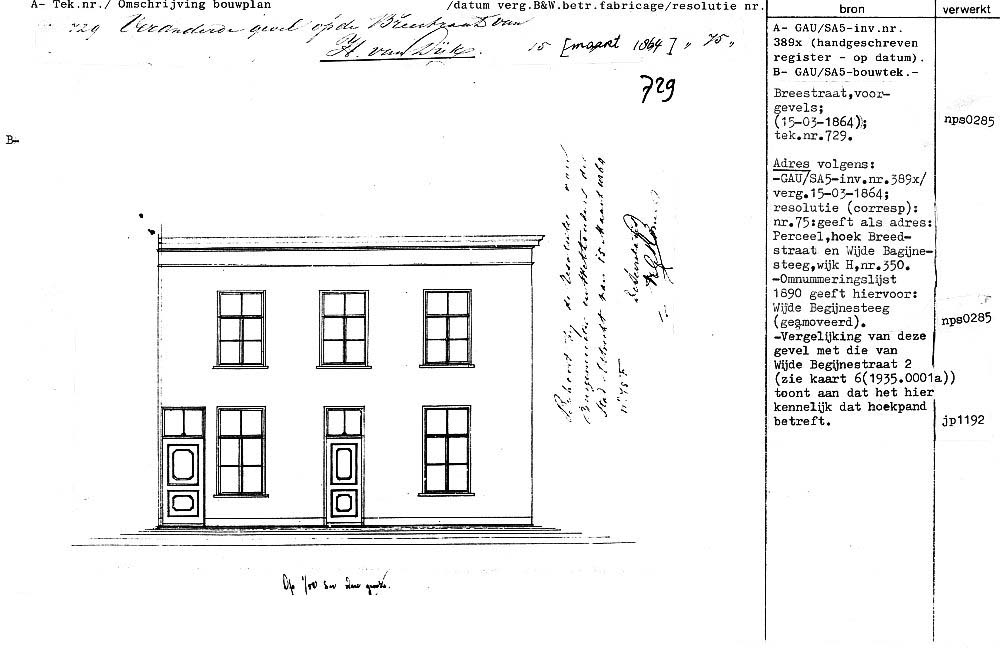 A- Tek.nr./ Omschrijving bouwplan /datum verg.B&W.betr.fabricage/resolutie nr.
bron
verwerkt
729 Veranderde gevel op de Breestraat van
H. van Dijk. 15 [maart 1864] „ 75 „
729
B-
Behoort bij de Resolutie van
Burgemeester en Wethouders der
Stad Utrecht van 15 Maart 1864
n° 75 F
De Secretaris
Op 1/100 der ware grootte.
A- GAU/SA5-inv.nr.
389x (handgeschreven
register - op datum).
B- GAU/SA5-bouwtek.-
Breestraat,voor-
gevels;
(15-03-1864);
tek.nr.729.
nps0285
Adres volgens:
-GAU/SA5-inv.nr.389x/
verg.15-03-1864;
resolutie (corresp):
nr.75:geeft als adres:
Perceel,hoek Breed-
straat en Wijde Bagijne-
steeg,wijk H,nr.350.
-Omnummeringslijst
1890 geeft hiervoor:
Wijde Begijnesteeg
(geamoveerd).
nps0285
-Vergelijking van deze
gevel met die van
Wijde Begijnestraat 2
(zie kaart 6(1935.0001a))
toont aan dat het hier
kennelijk dat hoekpand
betreft.
jp1192